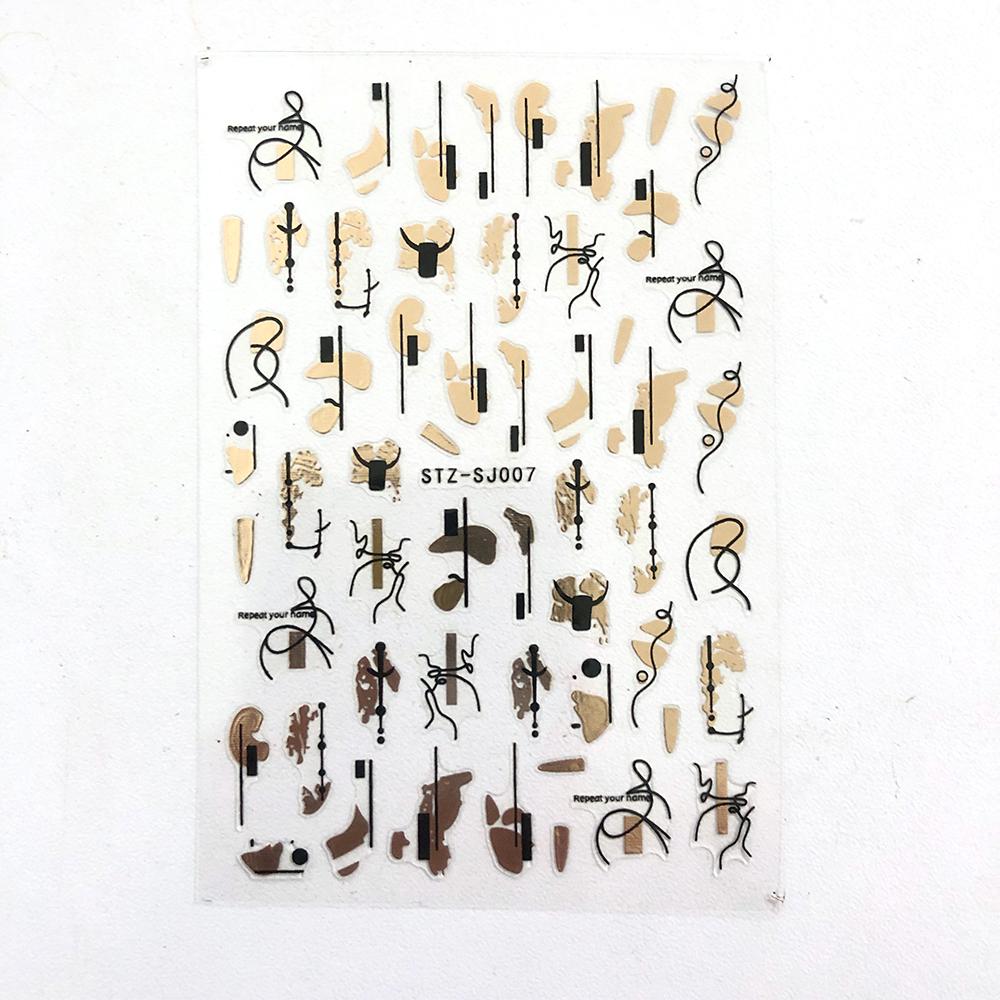 Repeat your name
Repeat your name
STZ-SJ007
Repeat your name
Repeat your name